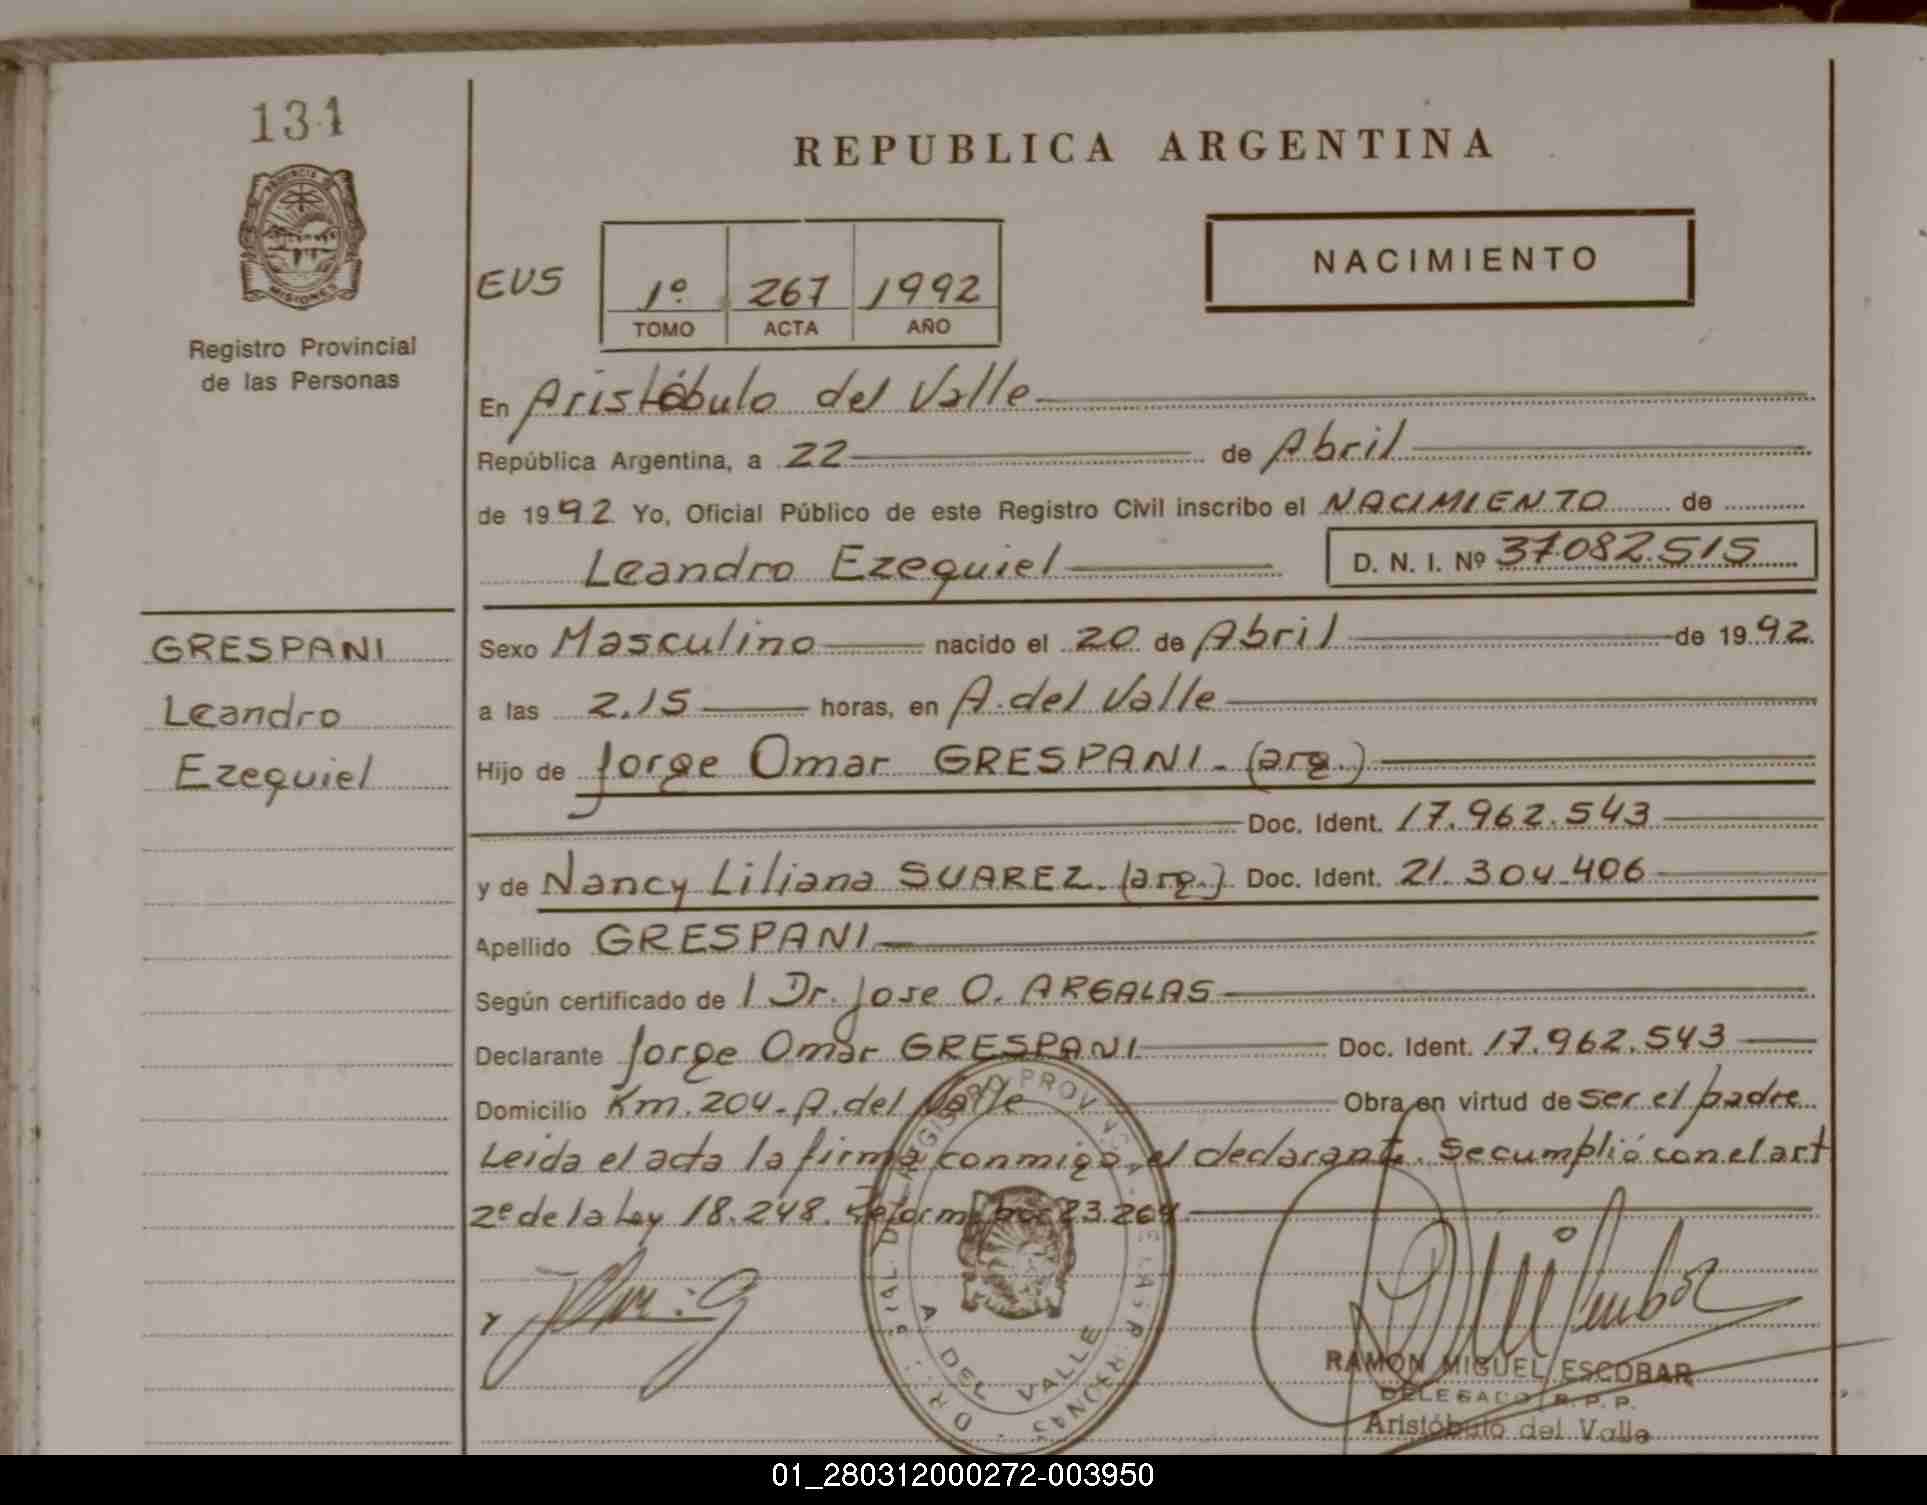 134
PROVINCIA DE
MISIONES
Registro Provincial
de las Personas
GRESPANI
Leandro
Ezequiel
REPUBLICA ARGENTINA
EUS 1º 267 1992
TOMO ACTA AÑO
NACIMIENTO
En Aristóbulo del Valle
República Argentina, a 22 de Abril
de 1992 Yo, Oficial Público de este Registro Civil inscribo el NACIMIENTO de
Leandro Ezequiel D. N. I. Nº 37.082.515
Sexo Masculino nacido el 20 de Abril de 1992.
a las 2.15 horas, en A. del Valle
Hijo de Jorge Omar GRESPANI - (arg.)
Doc. Ident. 17.962.543
y de Nancy Liliana SUAREZ. (arg.) Doc. Ident. 21.304.406
Apellido GRESPANI
Según certificado de l Dr. Jose O. ARGALAS
Declarante Jorge Omar GRESPANI Doc. Ident. 17.962.543
Domicilio Km. 204 - A. del Valle Obra en virtud de ser el padre
Leida el acta la firma conmigo, el declarante. Se cumplió con el art
2º de la Ley 18.248. Reform. por 23.264
REGISTRO PROVINCIAL DE LAS PERSONAS
A. DEL VALLE
RAMON MIGUEL ESCOBAR
DELEGADO R. P. P.
Aristóbulo del Valle
01_280312000272-003950